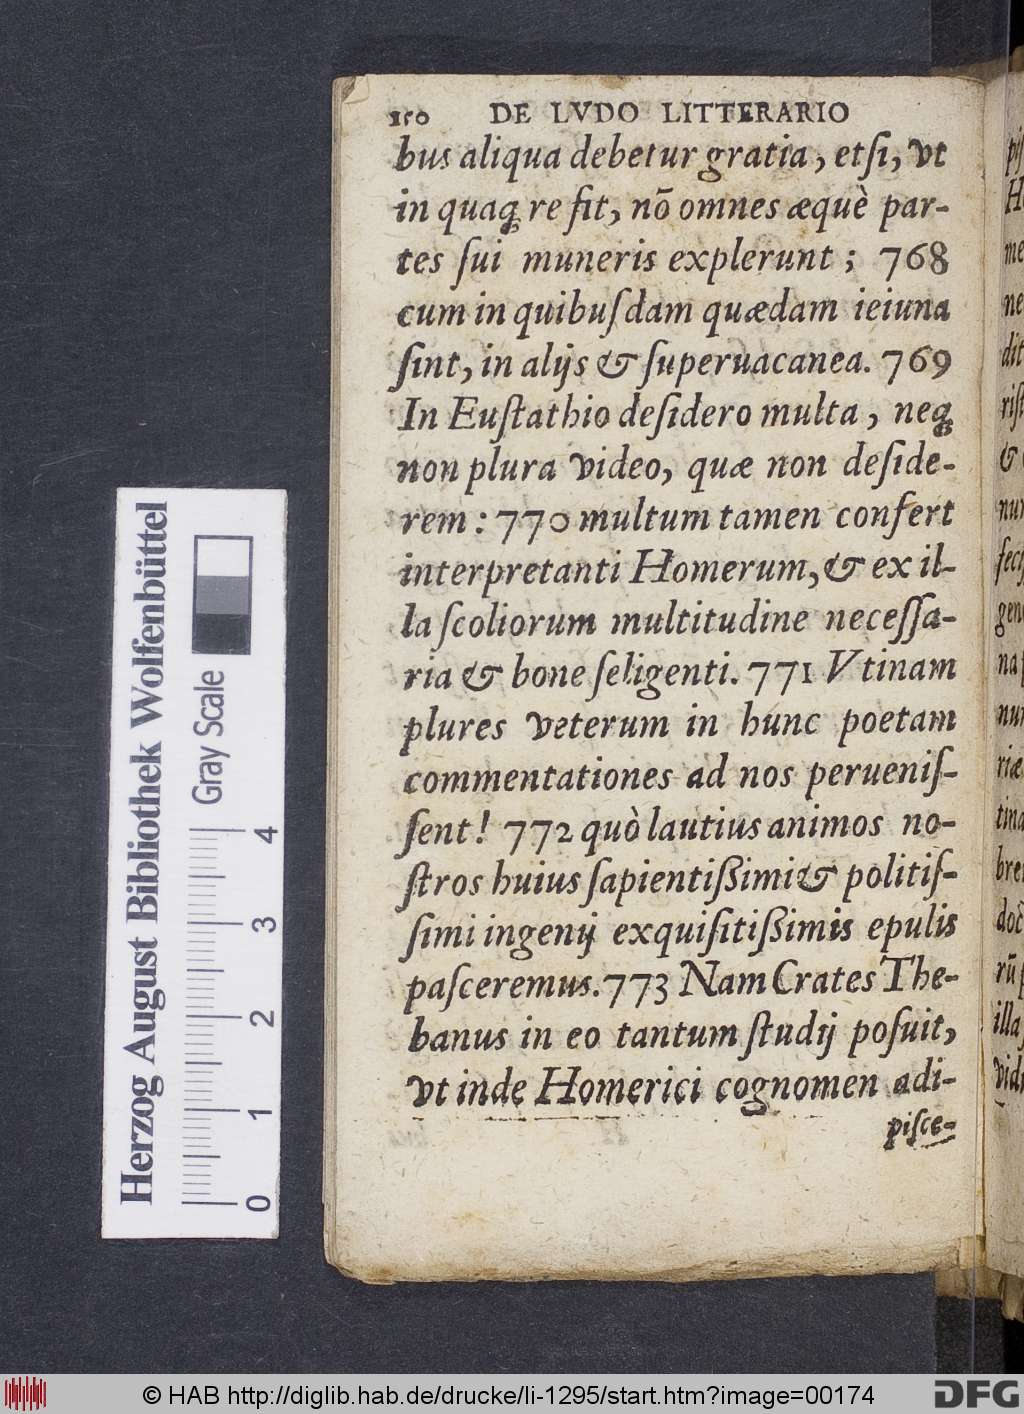 150 DE LVDO LITTERARIO
bus aliqua debetur gratia, etſi, vt
in quaq; re fit, nõ omnes æquè par-
tes ſui muneris explerunt; 768
cum in quibuſdam quædam ieiuna
ſint, in alijs & ſuperuacanea. 769
In Euſtathio deſidero multa, neq;
non plura video, quæ non deſide-
rem: 770 multum tamen confert
interpretanti Homerum, & ex il-
la ſcoliorum multitudine neceſſa-
ria & bone ſeligenti. 771 Vtinam
plures veterum in hunc poetam
commentationes ad nos perueniſ-
ſent! 772 quò lautius animos no-
ſtros huius ſapientißimi & politiſ-
ſimi ingenij exquiſitißimis epulis
paſceremus. 773 Nam Crates The-
banus in eo tantum ſtudij poſuit,
vt inde Homerici cognomen adi-
piſce-
Herzog August Bibliothek Wolfenbüttel
Gray Scale
0 1 2 3 4
piſ
H
me
ne
dit
riſt
&
nun
feciſ
gen
na p
nun
riæ
tina
bre
doc
rũ p
illa
vid
© HAB http://diglib.hab.de/drucke/li-1295/start.htm?image=00174
DFG